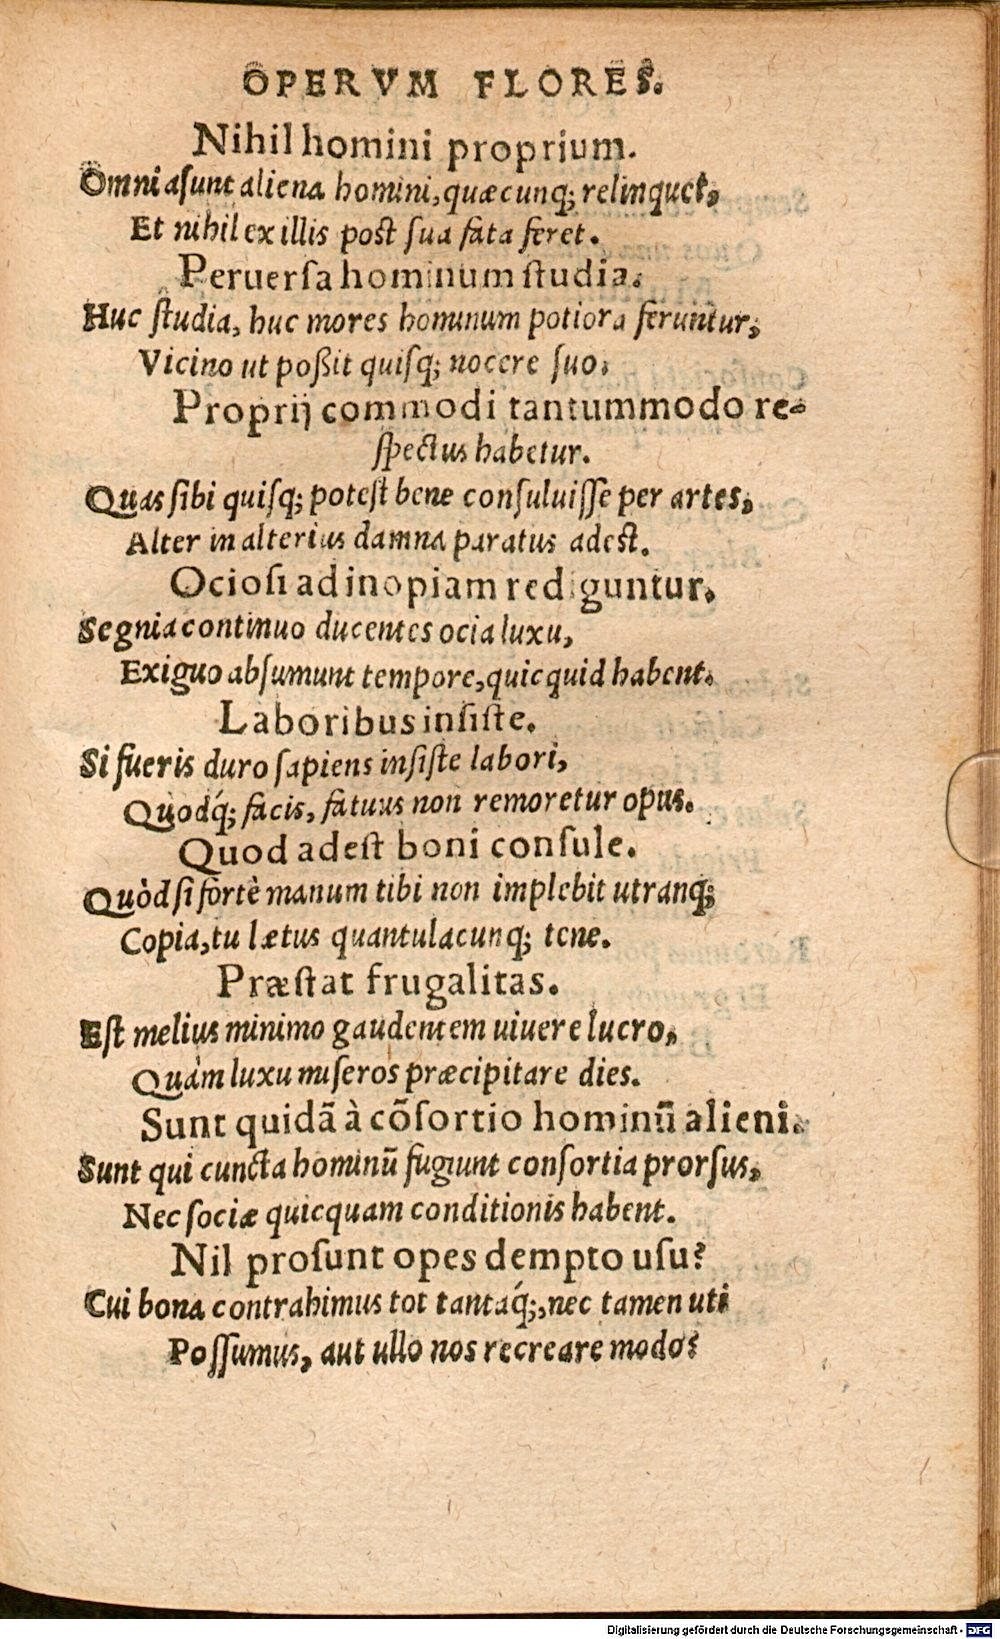 OPERVM FLORES.
Nihil homini proprium.
Omnia sunt aliena homini, quæcunq; relinquet,
Et nihil ex illis post sua fata feret.
Peruersa hominum studia.
Huc studia, huc mores hominum potiora feruntur,
Vicino ut poßit quisq; nocere suo.
Proprij commodi tantummodo re-
spectus habetur.
Quas sibi quisq; potest bene consuluisse per artes,
Alter in alterius damna paratus adest.
Ociosi ad inopiam rediguntur.
Segnia continuo ducentes ocia luxu,
Exiguo absumunt tempore, quicquid habent.
Laboribus insiste.
Si fueris duro sapiens insiste labori,
Quodq́; facis, fatuus non remoretur opus.
Quod adest boni consule.
Quòd si fortè manum tibi non implebit utranq;
Copia, tu lætus quantulacunq; tene.
Præstat frugalitas.
Est melius minimo gaudentem uiuere lucro,
Quàm luxu miseros præcipitare dies.
Sunt quidã à cõsortio hominũ alieni.
Sunt qui cuncta hominũ fugiunt consortia prorsus,
Nec sociæ quicquam conditionis habent.
Nil prosunt opes dempto usu?
Cui bona contrahimus tot tantaq́;, nec tamen uti
Possumus, aut ullo nos recreare modo?
Digitalisierung gefördert durch die Deutsche Forschungsgemeinschaft - DFG